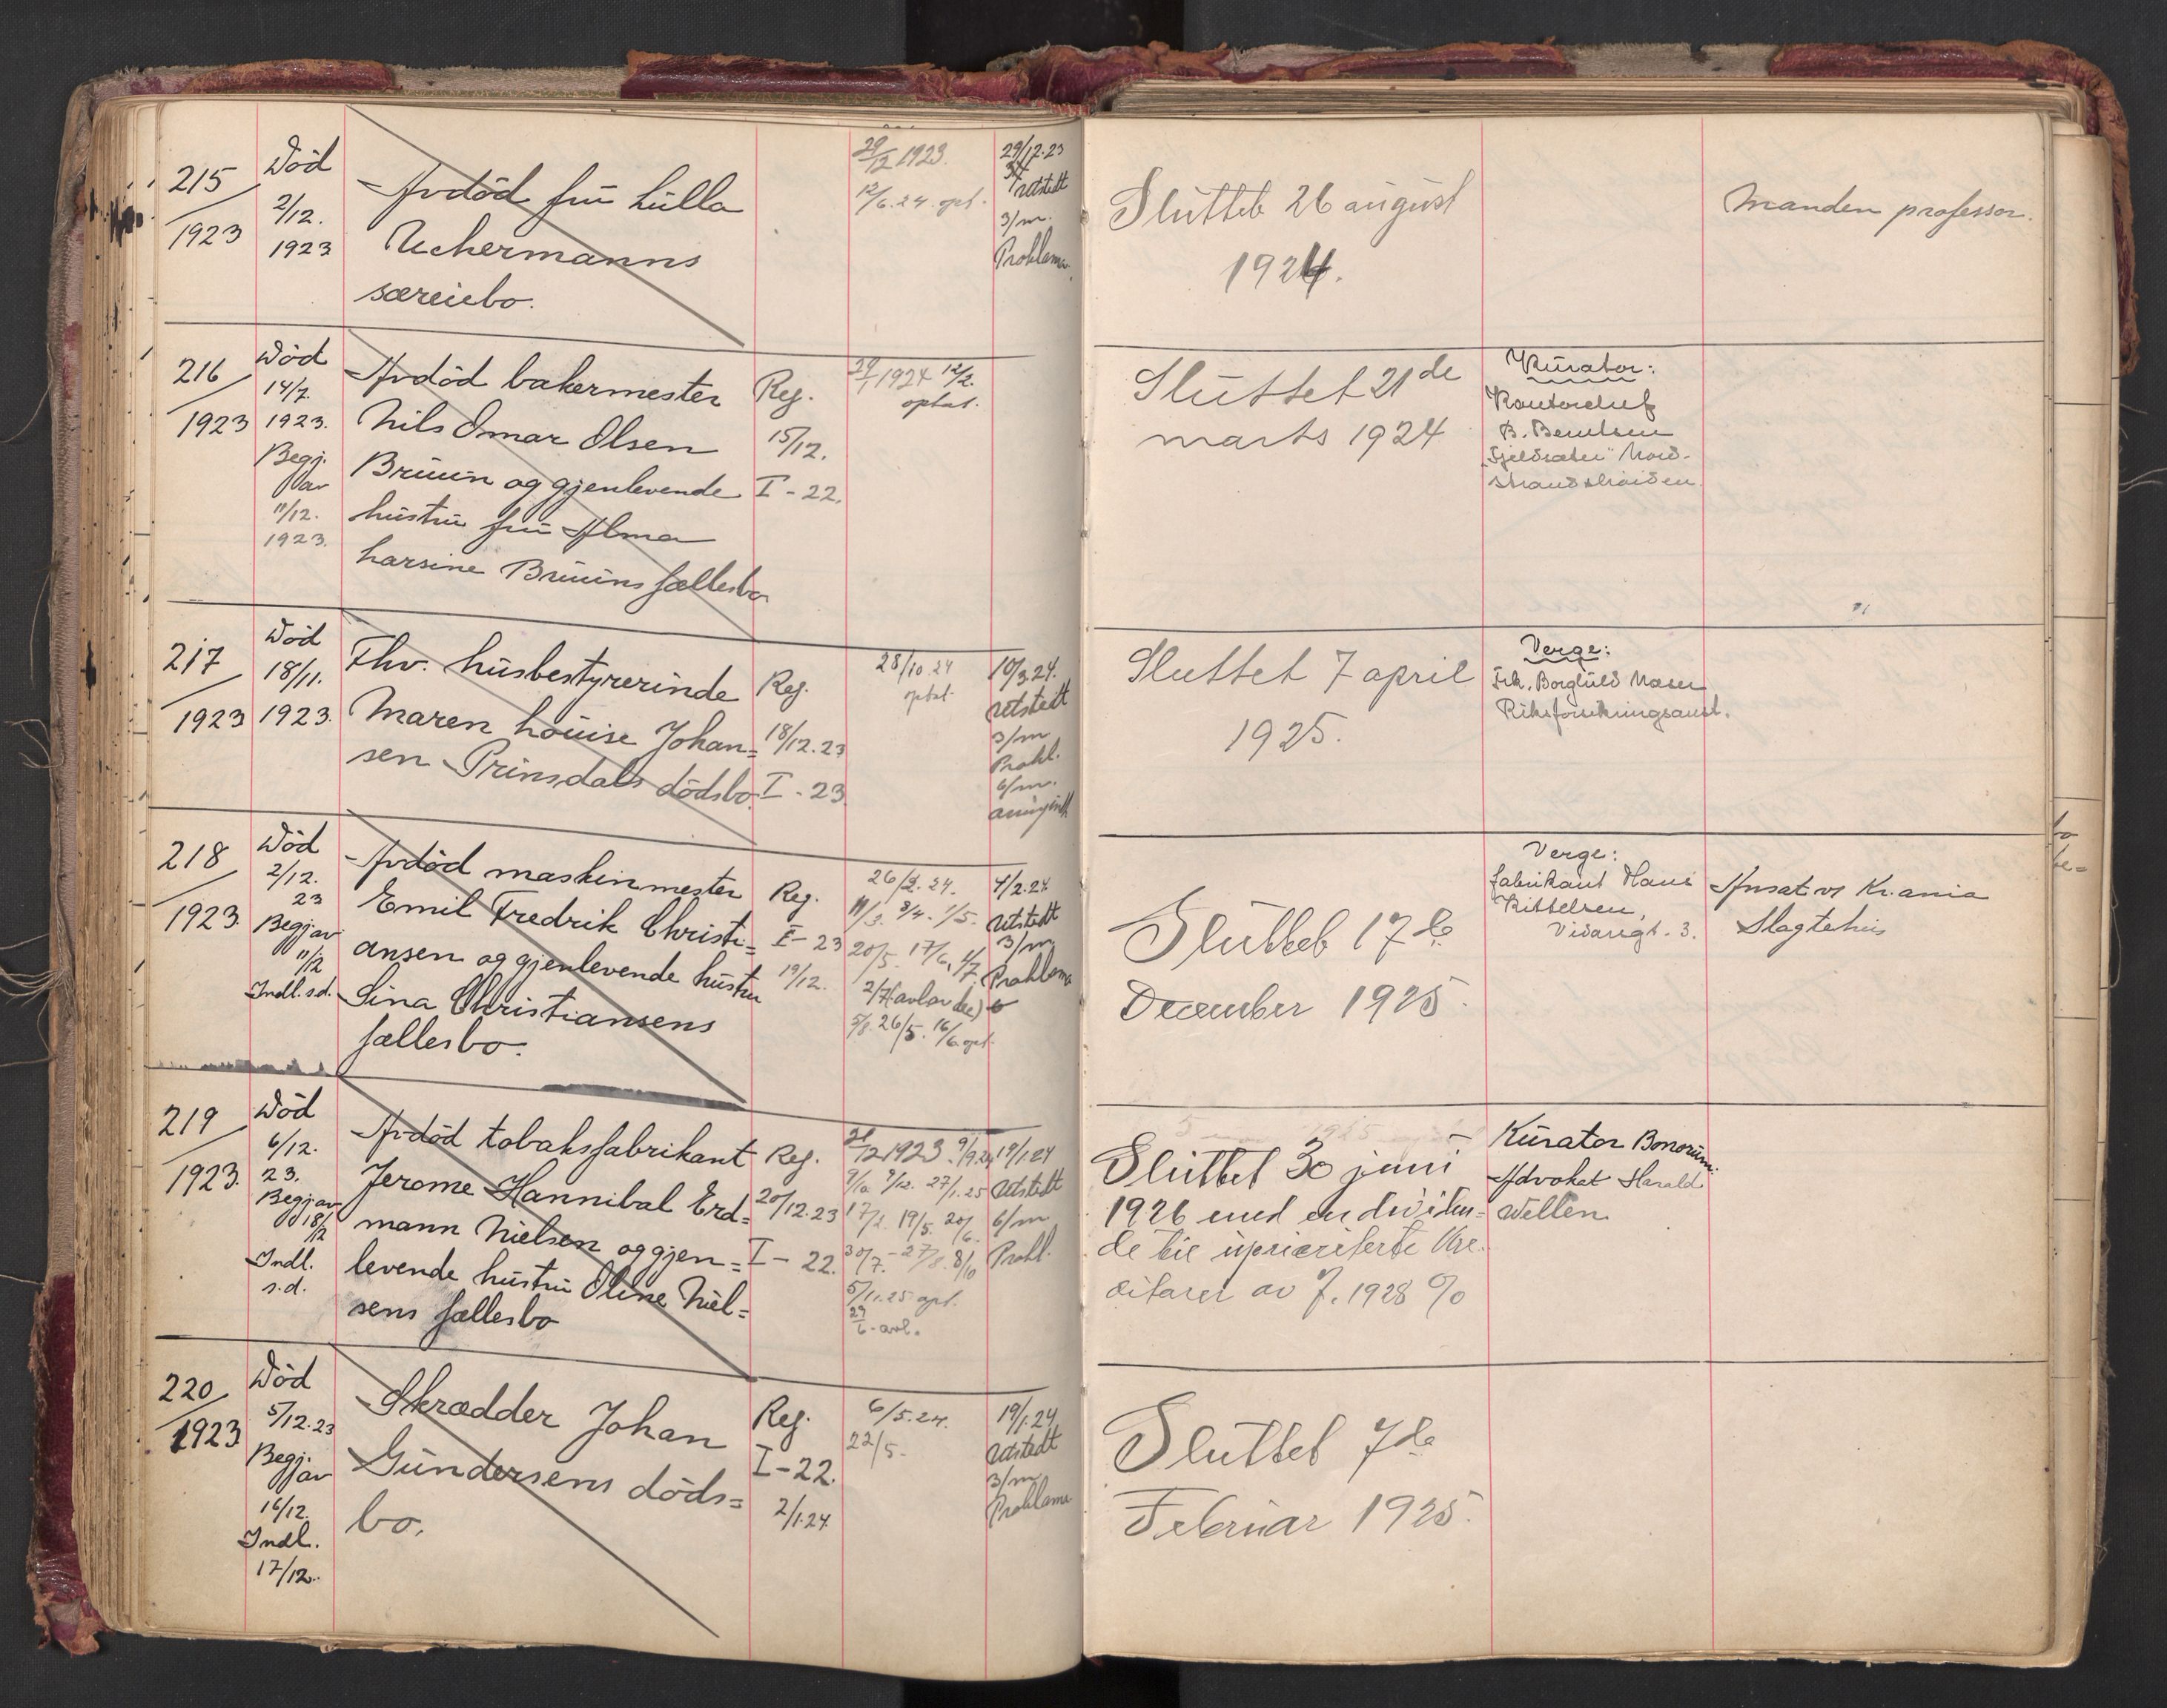 215
1923
Död
2/12.
1923
Avdöd frü Lülla
Uchermanns
særeiebo.
29/12 1923.
12/6.24. opt.
29/12.23
utstedt
3/m.
Proklama
Sluttet 26 aügüst
1924.
Manden professor.
216
1923
Död
14/7.
1923.
Begj.
av
11/12.
1923.
Avdöd bakermester
Nils Omar Olsen
Brüün og gjenlevende
hüstrü frü Alma
Larsine Brüüns fællesbo
Reg.
15/12.
I - 22.
29/1 1924 12/2.
optat.
Sluttet 21de
marts 1924
Kürator:
Kontorchef
B. Berntsen
"Fjeldsæter" Nord-
strandshöiden.
217
1923
Död
18/11.
1923.
Fhv. hüsbestyrerinde
Maren Loüise Johan=
sen Prinsdals dödsbo.
Reg.
18/12.23
I - 23
28/10 24
optat.
10/3.24.
utstedt
3/m
Prokl.
6/m.
Sluttet 7 april
1925.
Verge:
Frk. Borghild
Riksforsikringsanst.
218
1923.
Död
2/12.
23
Begj av
11/12
Indl. s.d.
Avdöd maskinmester
Emil Fredrik Christi=
ansen og gjenlevende hüstrü
Lina Christiansens
fællesbo.
Reg.
I - 23
19/12.
26/2. 24.
11/3. 8/4. 1/5.
20/5. 17/6. 1/7.
5/8. 26/5. 16/6 opt.
4/2.24
utstedt
3/m
Proklama
Sluttet 17de
December 1925.
Verge:
fabrikant Hans
Kittelsen,
Vidarsgt. 3.
Ansat v/ Kr.ania
Slagtehüs
219
1923.
Död
6/12.
23.
Begj av
18/12
Indl.
s.d.
Avdöd tobaksfabrikant
Jerome Hannibal Erd=
mann Nielsen og gjen=
levende hüstrü Oline Niel=
sens fællesbo
Reg.
20/12.23
I - 22.
21/12 1923. 9/9.24
9/10 9/12. 27/1.25
17/2. 19/5. 20/6.
30/7. - 27/8. 8/10
5/11.25 opt.
29/6. avl.
19/1.24
utstedt
6/m
Prokl.
Sluttet 30 jüni
1926 med en dividen=
de til üprioriterte Kre-
ditorer av 7.1928 %
Kürator Bonorüm:
Advokat Harald
Wellen.
220
1923
Död
5/12.23
Begj.
av
16/12.
Indl.
17/12.
Skrædder Johan
Gündersens döds=
bo.
Reg.
I-22.
2/1.24.
6/5.24.
22/5.
19/1.24
utstedt
3/m
Proklama
Sluttet 7de
Febrüar 1925.